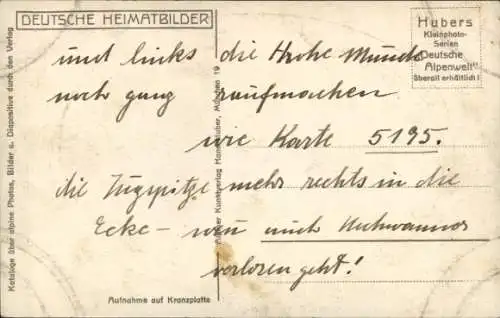 DEUTSCHE HEIMATBILDER
Hubers
Kleinphoto-
Serien
"Deutsche
Alpenwelt"
überall erhältlich!
und links die Hohe Munde
noch ganz raufmachen
wie Karte 5195.
die Zugspitze mehr rechts in die
Ecke – wenn auch
verloren geht!
Aufnahme auf Kranzplatte
Kataloge über alpine Photos, Bilder u. Diapositive durch den Verlag
Kunstverlag Hans Huber, München 19